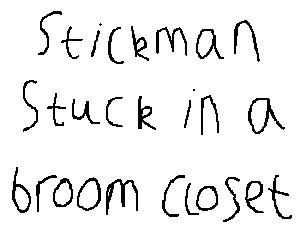 Stickman
Stuck in a
broom closet